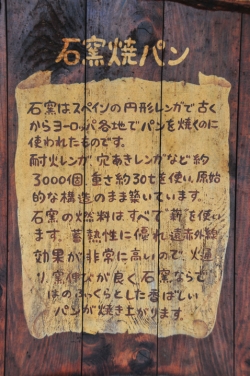 石窯焼パン
石窯はスペインの円形レンガで古く
からヨーロッパ各地でパンを焼くのに
使われたものです。
耐火レンガ、穴あきレンガなど約
3000個、重さ約30tを使い、原始
的な構造のまま築いています。
石窯の燃料はすべて薪を使い
ます。蓄熱性に優れ遠赤外線
効果が非常に高いので、火通
り、窯伸びが良く、石窯ならで
はのふっくらとした香ばしい
パンが焼き上がります。